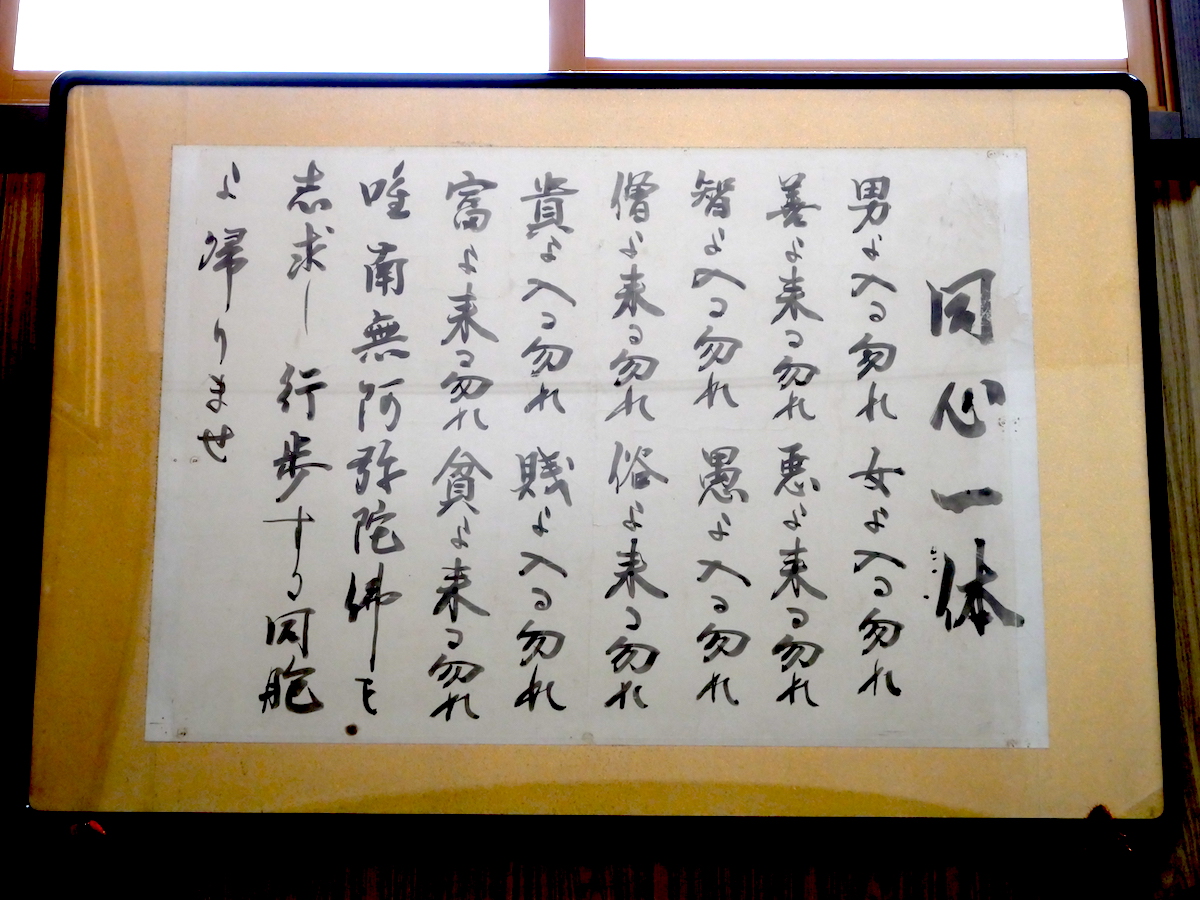 同心一体
男よ入る勿れ 女よ入る勿れ
善よ来る勿れ 悪よ来る勿れ
智よ入る勿れ 愚よ入る勿れ
僧よ来る勿れ 俗よ来る勿れ
貴よ入る勿れ 賤よ入る勿れ
富よ来る勿れ 貧よ来る勿れ
唯南無阿弥陀佛を
志求し行歩する同胞
よ帰りませ